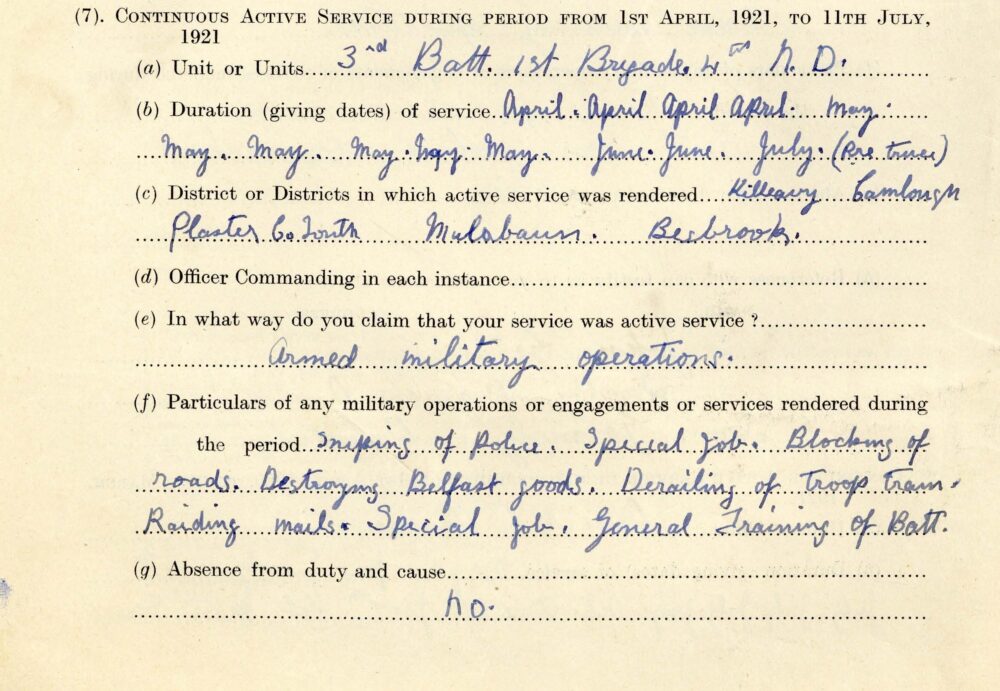 (7). CONTINUOUS ACTIVE SERVICE DURING PERIOD FROM 1ST APRIL, 1921, TO 11TH JULY,
1921
(a) Unit or Units...3rd Batt. 1st Brigade. 4th N. D.
(b) Duration (giving dates) of service...April. April April April. May.
May. May. May. May. May. June. June. July. (Pre truce)
(c) District or Districts in which active service was rendered...Killeavy Camlough
Plaster Co Louth Mulabaun. Besbrook.
(d) Officer Commanding in each instance...
(e) In what way do you claim that your service was active service ?...
Armed military operations.
(f) Particulars of any military operations or engagements or services rendered during
the period...Sniping of Police. Special Job. Blocking of
roads. Destroying Belfast goods. Derailing of troop train.
Raiding mails. Special job. General Training of Batt.
(g) Absence from duty and cause...
No.